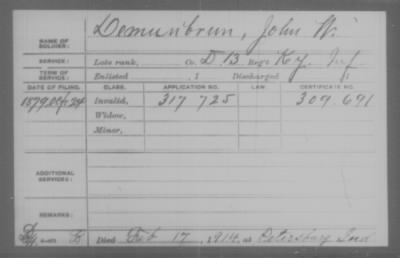 NAME OF SOLDIER: Demunbrun, John W.
SERVICE: Late rank, Co. D 13 Reg't Ky. Inf
TERM OF SERVICE: Enlisted , 1 Discharged , 1
DATE OF FILING. CLASS. APPLICATION NO. LAW CERTIFICATE NO.
1879 24 Invalid, 317 725 309.691
Widow,
Minor,
ADDITIONAL SERVICES:
REMARKS:
Died Feb 17, 1914, at Petersburg Ind